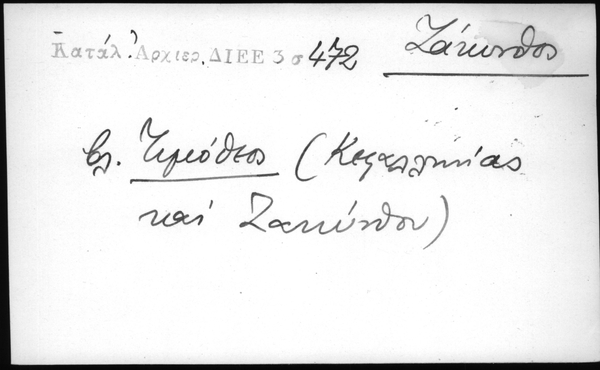 Κατάλ. Ἀρχιερ. ΔΙΕΕ 3 σ 472 Ζάκυνθος
βλ. Τιμόθεος (Κεφαλληνίας
καί Ζακύνθου)